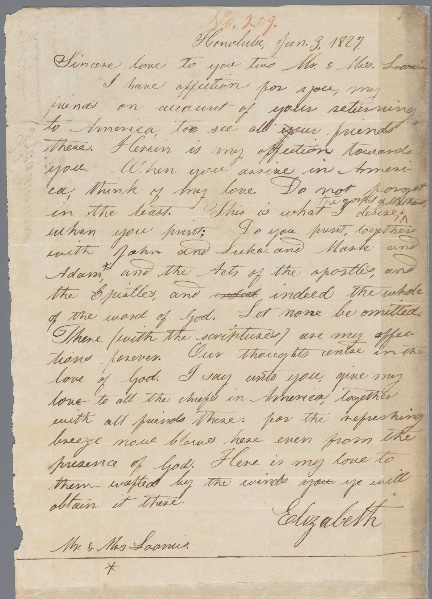 No. 209.
Honolulu, Jan. 3, 1827
Sincere love to you two Mr. & Mrs. Loomis
I have affection for you, my
friends on account of your returning
to America, too see all your friends
there. Herein is my affection towards
you. When you arrive in Ameri-
ca, think of my love. Do not forget
in the least. This is what I desire,
the gospel of Matthew,
when you print; Do you print, together
with John and Luke and Mark and
Adam* and the Acts of the apostles, and
the Epistles, and indeed the whole
of the word of God. Let none be omitted.
There (with the scriptures) are my affec-
tions forever. Our thoughts centre in the
love of God. I say unto you, give my
love to all the chiefs in America, together
with all friends there: for the refreshing
breeze now blows here even from the
presence of God. Here is my love to
them wafted by the winds ye will
obtain it there.
Elizabeth
Mr. & Mrs Loomis.
*